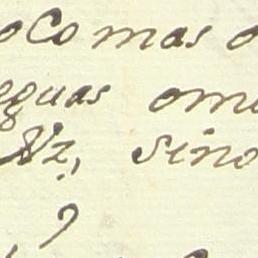 oco mas o
eguas ome
Nz, sino